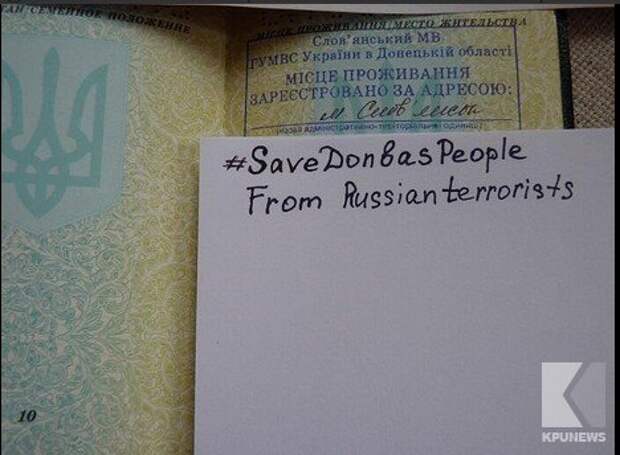 СЕМЕЙНОЕ ПОЛОЖЕНИЕ
МІСЦЕ ПРОЖИВАННЯ/МЕСТО ЖИТЕЛЬСТВА
Слов'янський МВ
ГУМВС України в Донецькій області
МІСЦЕ ПРОЖИВАННЯ
ЗАРЕЄСТРОВАНО ЗА АДРЕСОЮ:
м Слов'янськ
(назва адміністративно-територіальної одиниці)
#SaveDonbasPeople
From Russian terrorists
10
KPUNEWS